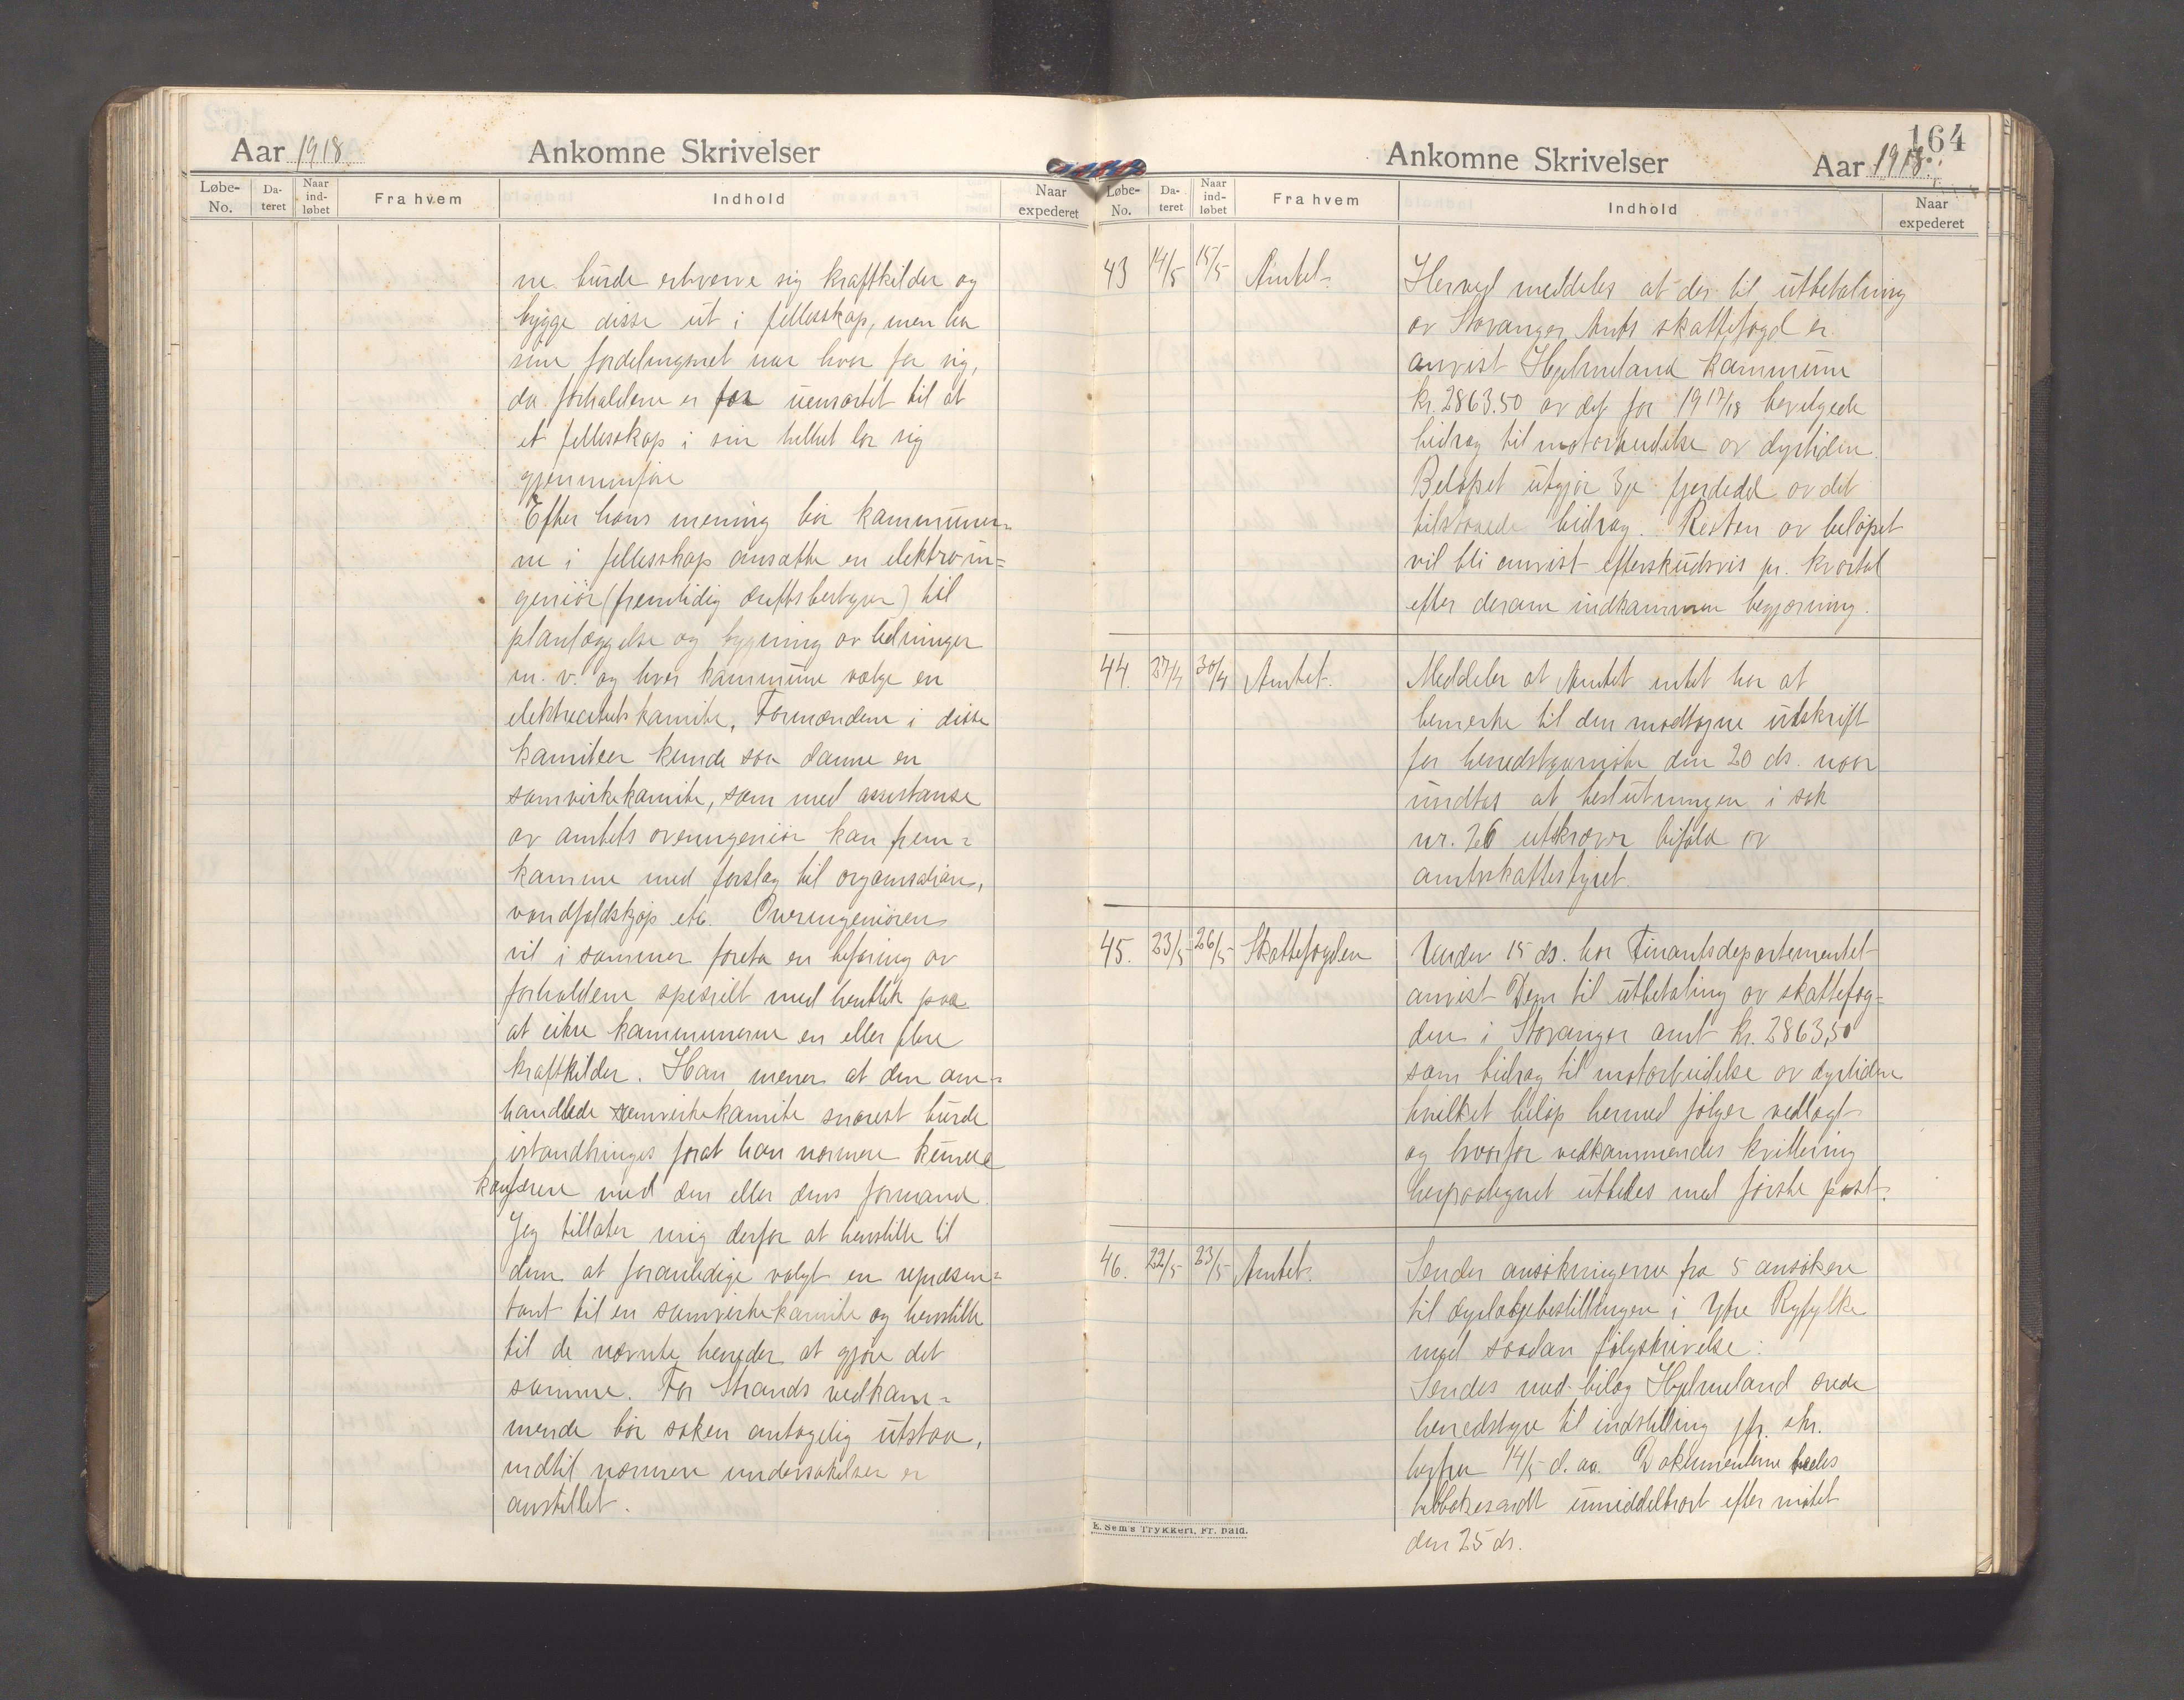 Aar 1918.
Ankomne Skrivelser
Løbe-No.
Dateret
Naar indløbet
Fra hvem
Indhold
Naar expederet
ne burde erhverve sig kraftkilder og
bygge disse ut i fellesskap, men ha
sine fordelingsnet hver for sig,
da forholdene er for uensartet til at
et fellesskap i sin helhet lar sig
gjennemføre
Efter hans mening bør kommuner-
ne i fellesskap ansætte en elektroin-
geniør (fremtidig driftsbestyrer) til
planlæggelse og bygning av ledninger
m. v. og hver kommune vælge en
elektricitetskomite. Formændene i disse
komiteer kunde saa danne en
samvirkekomite, som med assistanse
av amtets overingeniør kan frem-
komme med forslag til organisation,
vandfaldskjøp etc. Overingeniøren
vil i sommer foreta en befaring av
forholdene specielt med henblik paa
at sikre kommunerne en eller flere
kraftkilder. Han mener at den om-
handlede samvirkekomite snarest burde
istandbringes forat han nærmere kunde
konferere med den eller dens formand.
Jeg tillater mig derfor at henstille til
dem at foranledige valgt en repræsen-
tant til en samvirkekomite og henstille
til de nævnte herreder at gjøre det
samme. For Strands vedkom-
mende bør saken antagelig utstaa,
indtil nærmere undersøkelser er
anstillet.
Ankomne Skrivelser
Aar 1918.
164
Løbe-No.
Dateret
Naar indløbet
Fra hvem
Indhold
Naar expederet
43 14/5 15/5 Amtet. Herved meddeles at der til utbetaling
av Stavanger Amts skattefogd er
anvist Hjelmeland kommune
kr. 2863.50 av det for 1917/18 bevilgede
bidrag til motarbeidelse av dyrtiden.
Beløpet utgjør 3je fjerdedel av det
tilstaaede bidrag. Resten av beløpet
vil bli anvist efterskudsvis pr. kvartal
efter derom indkommen begjæring.
44. 27/4 30/4 Amtet. Meddeler at Amtet intet har at
bemerke til den mottagne utskrift
for herredstyremøte den 20 ds. naar
undtas at beslutningen i sak
nr. 26 utkræver bifald av
amtsskattestyret.
45. 23/5 26/5 Skattefogden Under 15 ds. har Finantsdepartementet
anvist Dem til utbetaling av skattefog-
den i Stavanger amt kr. 2863,50
som bidrag til motarbeidelse av dyrtiden
hvilket beløp hermed følger vedlagt
og hvorfor vedkommendes kvittering
herpaategnet utbedes med første post.
46. 22/5 23/5 Amtet. Sender ansøkningerne fra 5 ansøkere
til dyrlægebestillingen i Ytre Ryfylke
med saadan følgeskrivelse:
Sendes med bilag Hjelmeland ærede
herredstyre til indstilling jfr. skr.
herfra 14/5 d. aa. Dokumenterne bedes
tilbakesendt umiddelbart efter møtet
den 25 ds.
E. Sem's Trykkeri, Fr. hald.